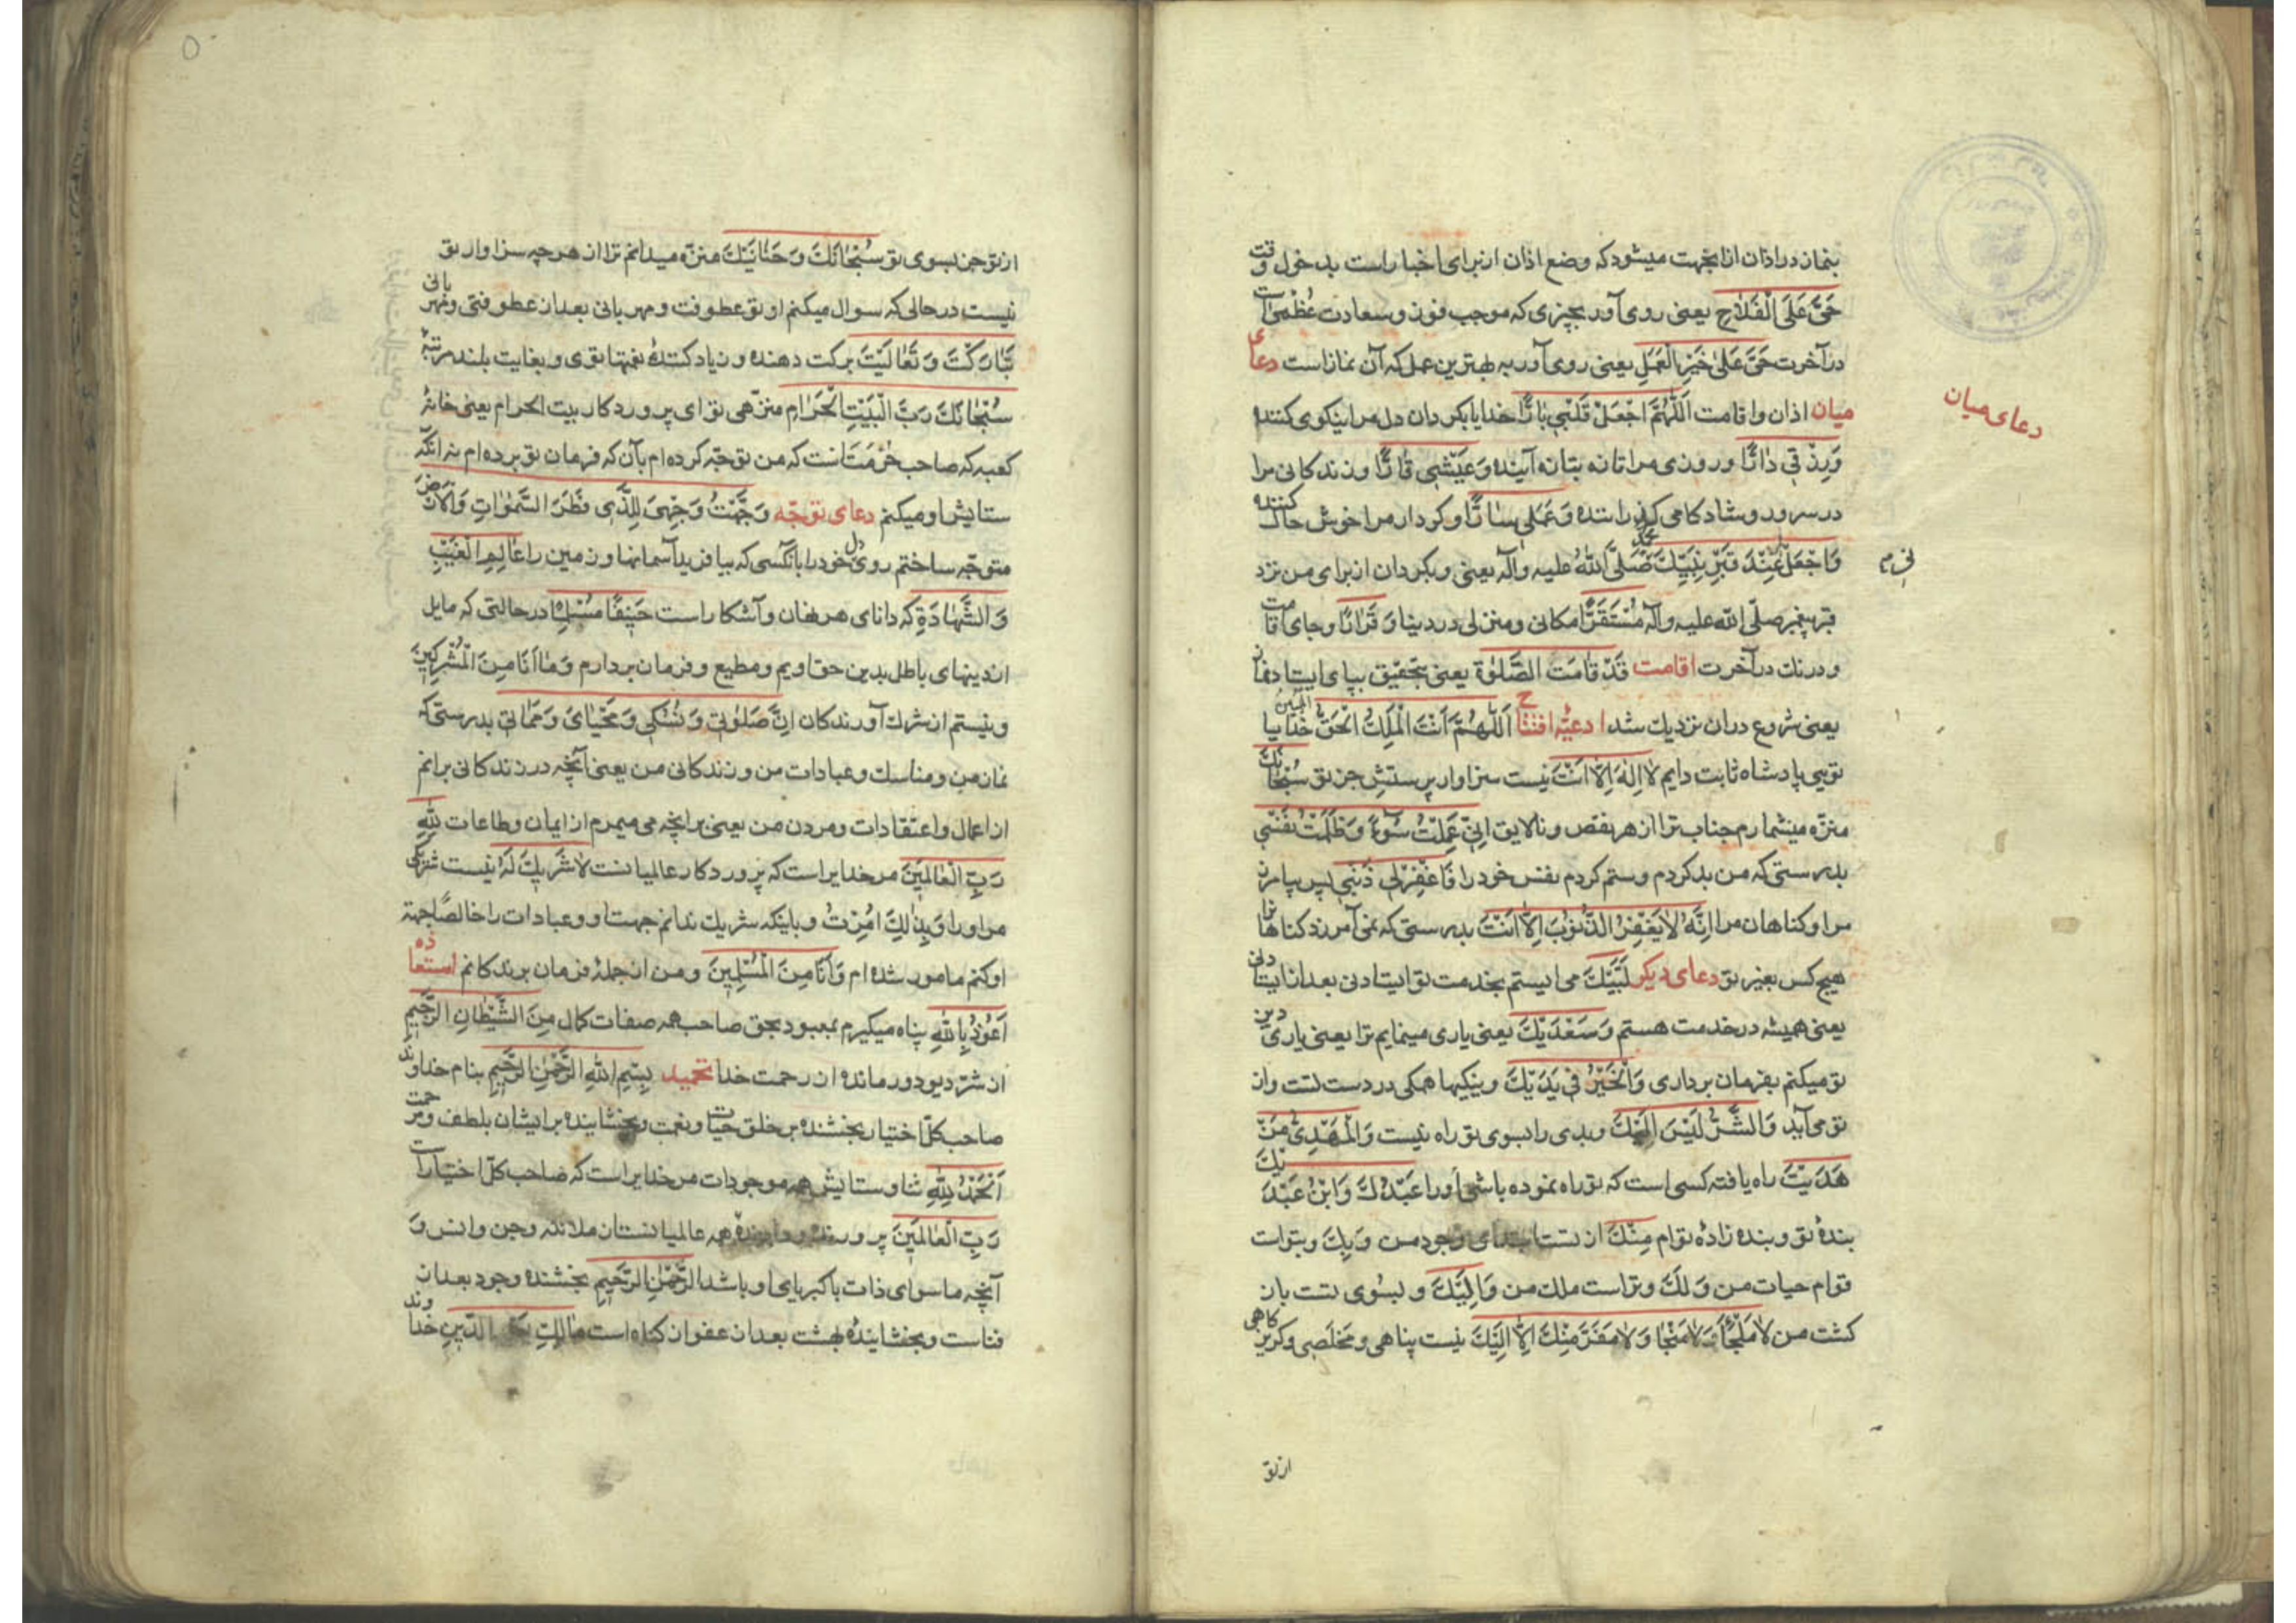 بنماز در اذان ازانجهت میشود که وضع اذان از برای اخبار است بدخول وقت
حَیَّ عَلَی الْفَلاحِ یعنی روی آور بچیزی که موجب فوز و سعادت عُظْمیٰ است
در آخرت حَیَّ عَلیٰ خَیْرِ الْعَمَلِ یعنی روی آور به بهترین عمل که آن نماز است دعای
میان اذان و اقامت اَللّٰهُمَّ اجْعَلْ قَلْبی بٰارًّا خدایا بکردان دل مرا نیکوی کننده
دعای میان
وَرِزْقی دٰارًّا و روزی مرا تازه بتازه آینده وَعَیْشی قٰارًّا و زندکانی مرا
در سرور و شادکامی کذراننده وَعَمَلی سٰارًّا و کردار مرا خوش حال کننده
وَاجْعَلْ لی عِنْدَ قَبْرِ نَبِیِّکَ مُحَمَّدٍ صَلَّی اللهُ علیه وآله یعنی و بکردان از برای من نزد
قبر پیغمبر صلّی الله علیه وآله مُسْتَقَرًّا مکانی و منزلی در دینا وَقَرٰارًا و جای اقامت
و درنك در آخرت اقامت قَدْ قٰامَتِ الصَّلوٰة یعنی بتحقیق بپای ایستاد نماز
یعنی شروع دران نزدیك شد ادعیّه افتتاح اَللّٰهُمَّ اَنْتَ الْمَلِكُ الْحَقُّ الْمُبینُ خدایا
تویی پادشاه ثابت دایم لا اِلٰهَ اِلّا اَنْتَ نیست سزاوار پرستش جز تو سُبْحٰانَكَ
منزّه میشمارم جناب ترا از هر نقص و نالایق اِنّی عَمِلْتُ سُوءًا وَظَلَمْتُ نَفْسی
بدرستی که من بد کردم و ستم کردم نفس خود را فَاغْفِرْ لی ذَنْبی پس بیامرز
مرا و کناهان مرا اِنَّهُ لا یَغْفِرُ الذُّنوُبَ اِلّا اَنْتَ بدرستی که نمی آمرزد کناهانرا
هیچ کس بغیر تو دعای دیکر لَبَّیْكَ می ایستم بخدمت تو ایستادنی بعد از ایستادنی
یعنی همیشه در خدمت هستم وَسَعْدَیْكَ یعنی یاری مینمایم ترا یعنی یاری دین
تو میکنم بفرمان برداری وَالْخَیْرُ فی یَدَیْكَ و نیکیها همکی در دست تست و از
تو می آید وَالشَّرُّ لَیْسَ اِلَیْكَ و بدی را بسوی تو راه نیست وَالْمَهْدِیُّ مَنْ
هَدَیْتَ راه یافته کسی است که تو راه نموده باشی اورا عَبْدُكَ وَابْنُ عَبْدَیْكَ
بندهٔ تو و بنده زادهٔ تو ام مِنْكَ از تست ابتدای وجود من وَبِكَ و بتو است
قوام حیات من وَلَكَ و تراست ملك من وَاِلَیْكَ و بسوی تست باز
کشت من لا مَلْجَأَ وَلا مَنْجٰا وَلا مَفَرَّ مِنْكَ اِلّا اِلَیْكَ نیست پناهی و مخلصی و کریزکاهی
از تو
از تو جز بسوی تو سُبْحٰانَكَ وَحَنٰانَیْكَ منزّه میدانم ترا از هر چه سزاوار تو
نیست در حالی که سوال میکنم از تو عطوفت و مهربانی بعد از عطوفتی و مهربانی
تَبٰارَکْتَ وَتَعٰالَیْتَ برکت دهنده و زیاد کنندهٔ نعمتها توی و بغایت بلند مرتبهٔ
سُبْحٰانَكَ رَبَّ الْبَیْتِ الْحَرٰامِ منزّهی تو ای پروردکار بیت الحرام یعنی خانهٔ
کعبه که صاحب حرمت است که من توجّه کرده ام بآن که فرمان تو برده ام نه انکه
ستایش او میکنم دعای توجّه وَجَّهْتُ وَجْهِیَ لِلَّذی فَطَرَ السَّمٰوٰاتِ وَالْاَرْضَ
متوجّه ساختم روی دل خود را بانکسی که بیافرید آسمانها و زمین را عٰالِمِ الْغَیْبِ
وَالشَّهٰادَةِ که دانای هر نهان و آشکار است حَنیفًا مُسْلِمًا در حالتی که مایل
از دینهای باطل بدین حقّ اویم و مطیع و فرمان بردارم وَمٰا اَنَا مِنَ الْمُشْرِکینَ
و نیستم از شرك آورندکان اِنَّ صَلوٰتی وَنُسُکی وَمَحْیٰایَ وَمَمٰاتی بدرستی که
نماز من و مناسك و عبادات من و زندکانی من یعنی آنچه در زندکانی برانم
از اعمال و اعتقادات و مردن من یعنی برانچه می میرم از ایمان و طاعات لِلّٰهِ
رَبِّ الْعٰالَمینَ مر خدایراست که پروردکار عالمیانست لا شَریكَ لَهُ نیست شریکی
مر او را وَبِذٰلِكَ اُمِرْتُ و باینکه شریك ندانم جهت او و عبادات را خالصًا جهة
او کنم مامور شده ام وَاَنَا مِنَ الْمُسْلِمینَ و من از جملهٔ فرمان برندکانم استعاذه
اَعُوذُ بِاللّٰهِ پناه میکیرم بمعبود بحق صاحب همه صفات کمال مِنَ الشَّیْطٰانِ الرَّجیمِ
از شرّ دیو دور مانده از رحمت خدا تحمید بِسْمِ اللّٰهِ الرَّحْمٰنِ الرَّحیمِ بنام خداوند
صاحب کلّ اختیار بخشنده بر خلق حیات و نعمت و بخشاینده برایشان بلطف و مرحمت
اَلْحَمْدُ لِلّٰهِ ثنا و ستایش همه موجودات مر خدایراست که صاحب کلّ اختیار است
رَبِّ الْعٰالَمینَ همه عالمیانست از ملائکه و جن و انس و
آنچه ما سوای ذات با کبریای او باشد الرَّحْمٰنِ الرَّحیمِ بخشنده وجود بعد از
فناست و بخشایندهٔ بهشت بعد از عفو از کناه است مٰالِكِ یَوْمِ الدّینِ خداوند